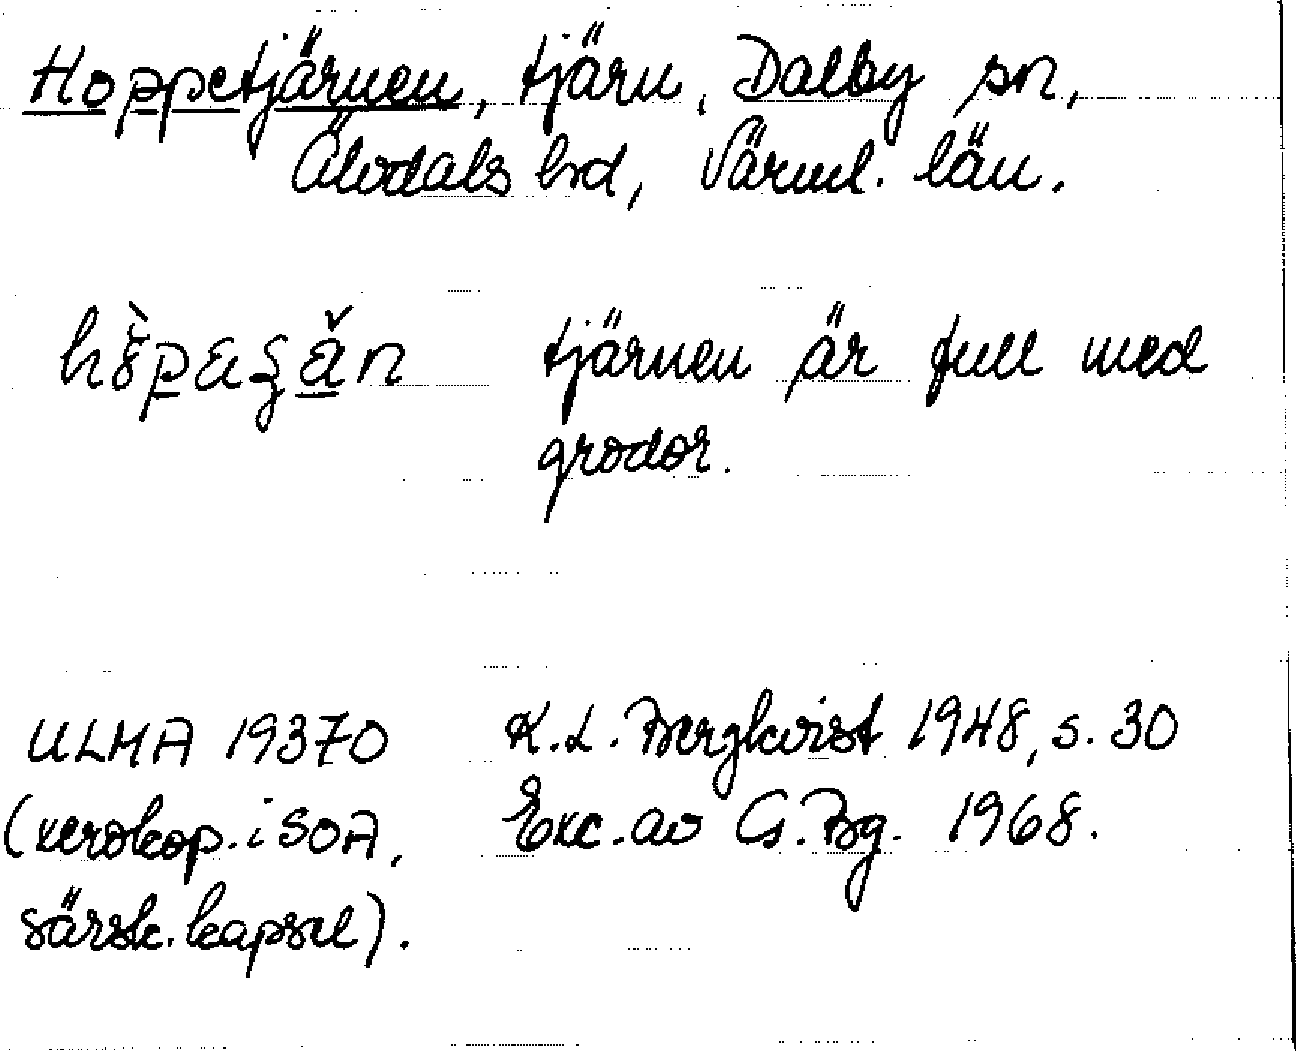 Hoppetjärnen, tjärn, Dalby sn,
Älvdals hd, Värml. län.
tjärnen är full med
grodor.
ULMA 19370 K.L. Bergkvist 1948, s. 30
(xerokop. i SOA, Exc. av G. Bg. 1968.
särsk. kapsel).